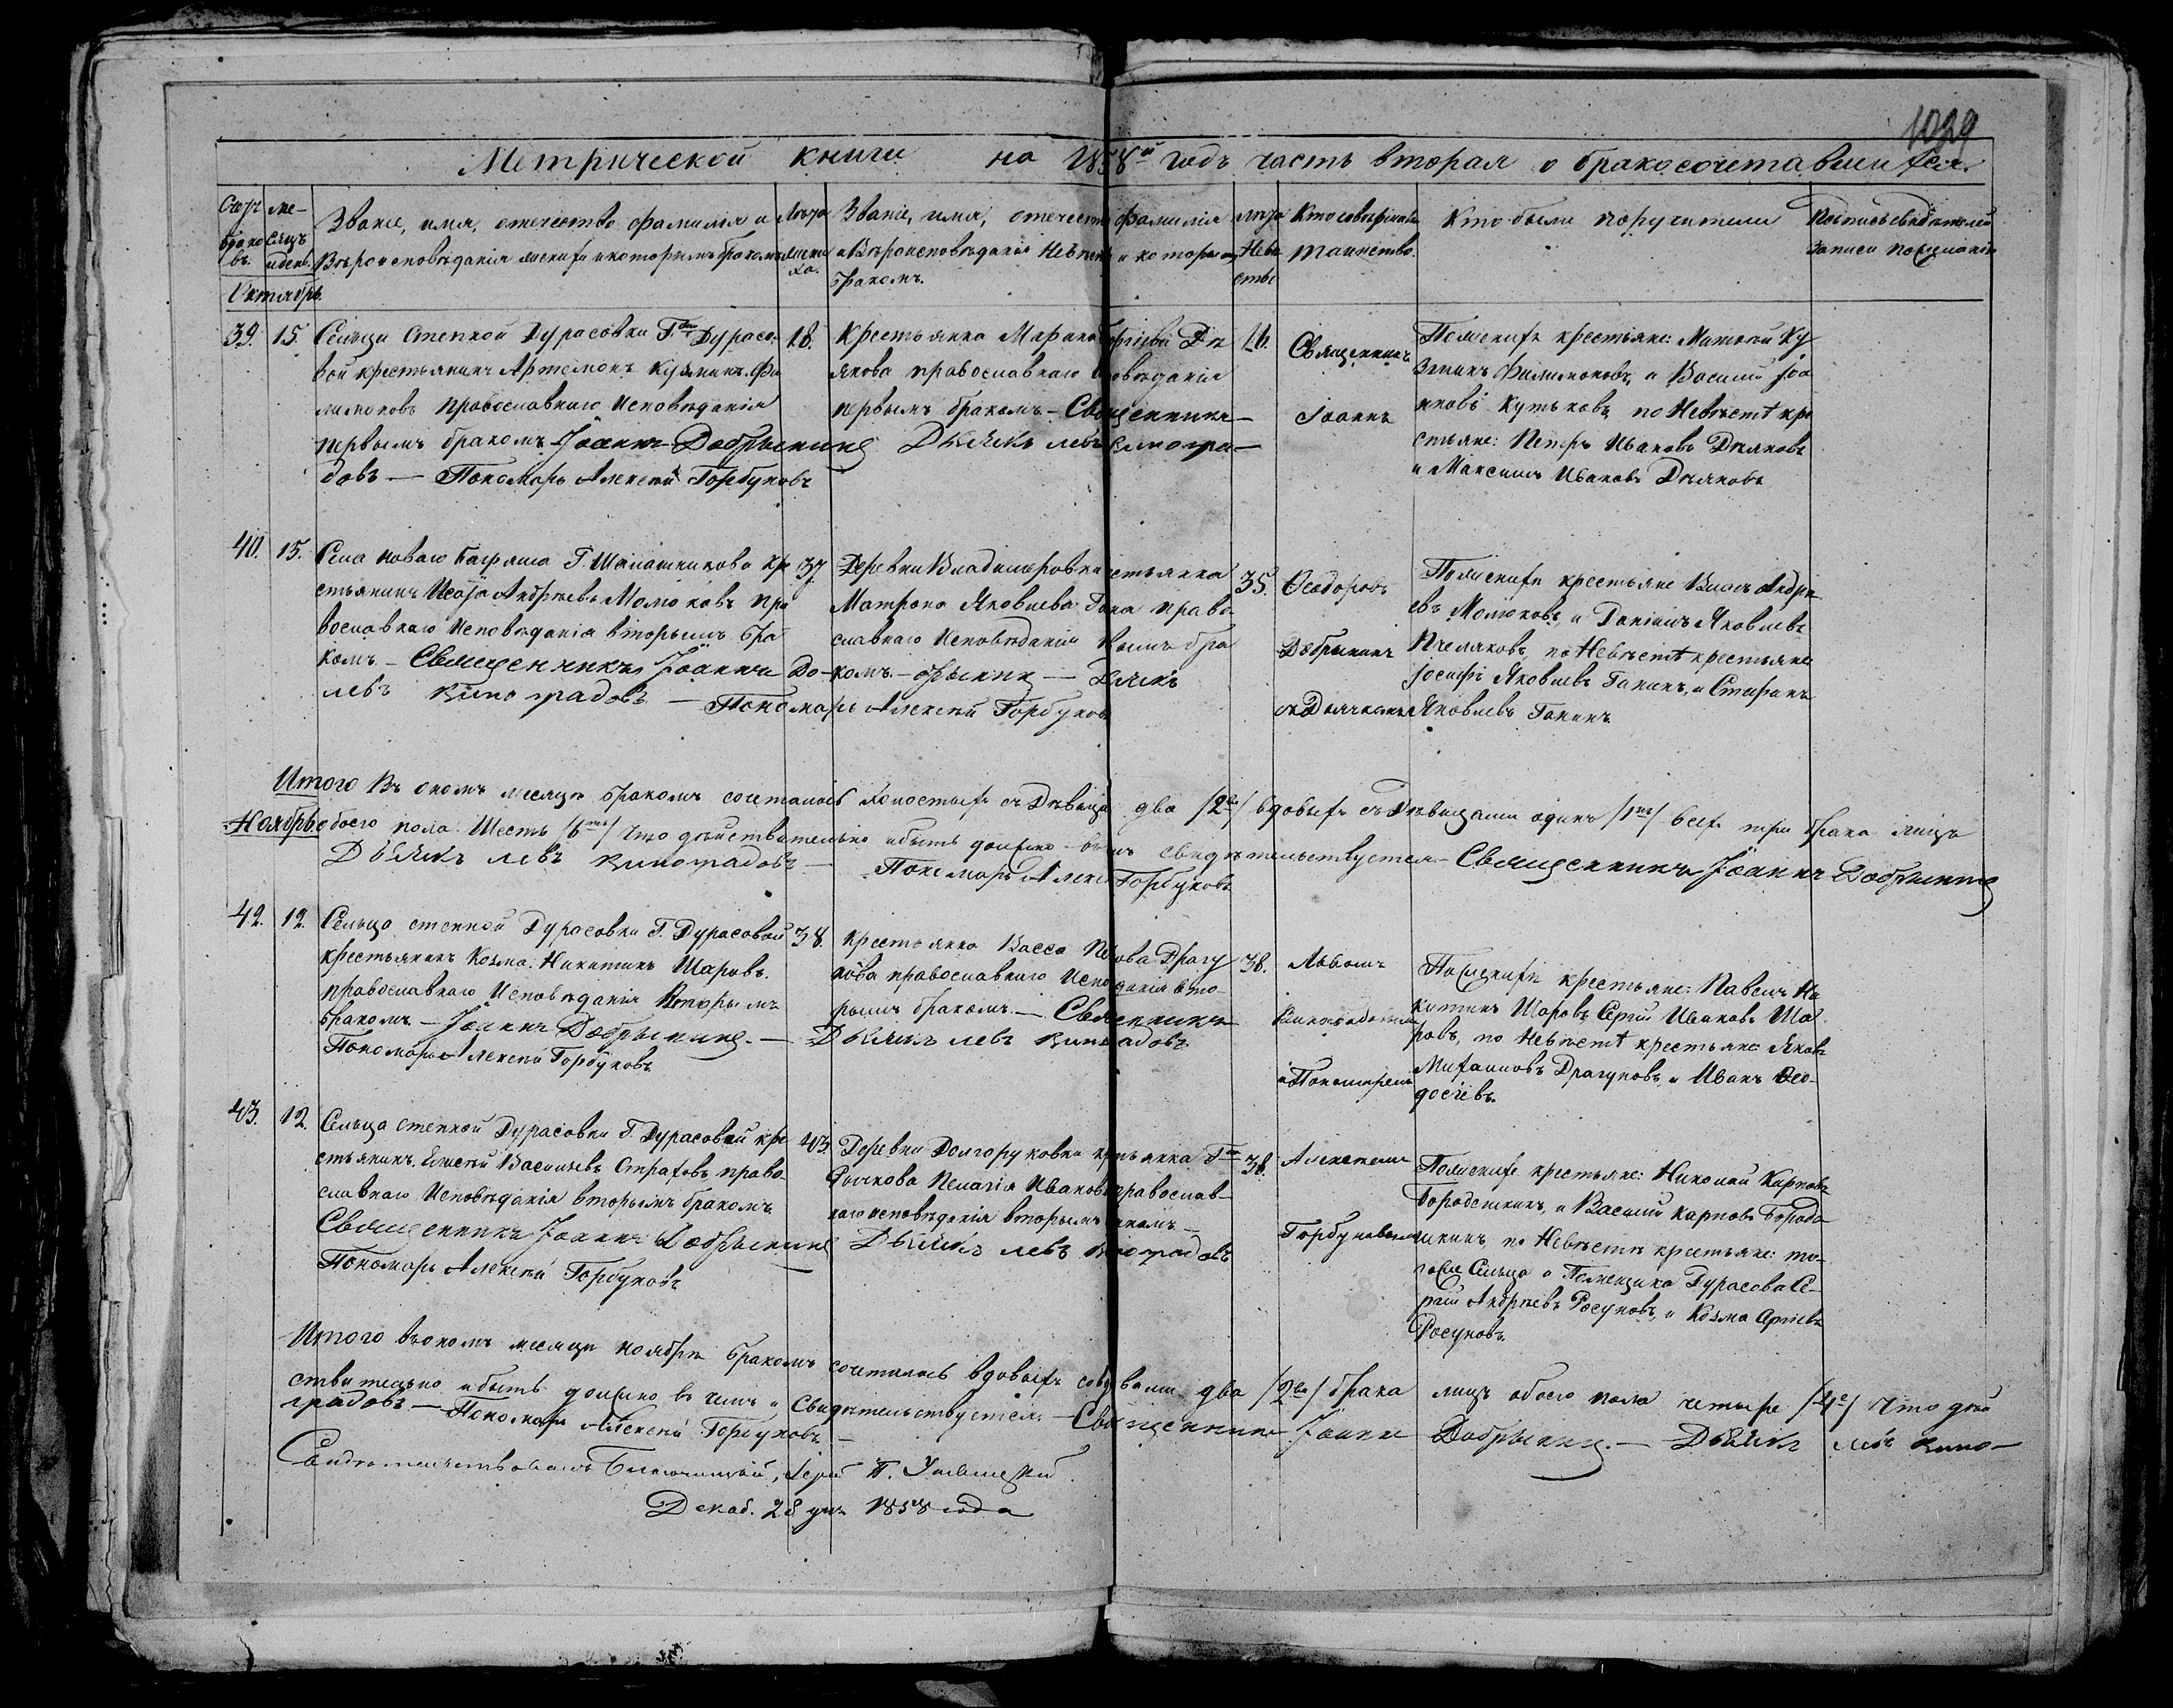 1029
Метрической книги на 1858й годъ часть вторая о бракосочетавшихся.
Счетъ браковъ.
Месяцъ и день.
Званіе, имя, отечество фамилія и
Вѣроисповѣданія жениха и которымъ бракомъ
Лѣта жениха.
Званіе, имя, отечество фамилія
и Вѣроисповѣданія Невѣсты и которымъ
бракомъ.
Лѣта Невѣсты
Кто совершалъ
таинство.
Кто были поручители
Подпись свидѣтелей
записи по желанію
Октябрь.
39. 15.
Сельца Степной Дурасовки Гжи Дурасо-
вой крестьянинъ Артемонъ Кузминъ Фи
лимоновъ православнаго Исповѣданія
первымъ бракомъ Іоаннъ Добрынинъ
довъ — Пономарь Алексѣй Горбуновъ
18.
Крестьянка Марина Дѣ
якова православнаго Исповѣданія
первымъ бракомъ — Священникъ —
Дьячекъ левъ Виногра—
16.
Священникъ
Іоаннъ
По женихѣ крестьяне: Матвѣй Ку
зминъ Филимоновъ, и Василій Іоа
нновъ Кутьковъ, по Невѣстѣ кре
стьяне: Петръ Ивановъ Дѣяковъ
и Максимъ Ивановъ Дѣяковъ
40. 15.
Села Новаго Багряша Г. Шалашникова кре
стьянинъ Исаія Андрѣевъ Молоковъ пра
вославнаго Исповѣданія вторымъ бра
комъ — Священникъ Іоаннъ До-
левъ Виноградовъ — Пономарь Алексѣй Горбуновъ
37.
Деревни Владимровки крестьянка
Матрона Яковлева Ганина право
славнаго Исповѣданія бра
комъ. — брынинъ — Дьячекъ
35.
Ѳеодоровъ
Добрынинъ
съ Дьячкомъ
По женихѣ крестьяне Андрѣ
евъ Молоковъ, и Даніилъ Яковлевъ
Пчеляковъ, по Невѣстѣ крестьяне
Іосифъ Яковлевъ Ганинъ, и Стефанъ
Яковлевъ Ганинъ
Итого Въ ономъ месяцѣ бракомъ сочеталось холостыхъ съ Дѣвицами два /2ва/ вдовыхъ съ Дѣвицами одинъ /1нъ/ всѣхъ три брака лицъ
Ноябрь обоего пола Шесть /6ть/ что дѣйствительно и быть должно въ чемъ свидѣтельствуется — Священникъ Іоаннъ Добрынинъ
Дьячекъ левъ Виноградовъ — Пономарь Алексѣй Горбуновъ
42. 12.
Сельца степной Дурасовки Г. Дурасовой
крестьянинъ Козма Никитинъ Шаровъ.
православнаго Исповѣданія Вторымъ
бракомъ — Іоаннъ Добрынинъ. —
Пономарь Алексѣй Горбуновъ
38.
Крестьянка Васса Драгу
нова православнаго Исповѣданія вто-
рымъ бракомъ. — Священникъ
Дьячекъ левъ Виноградовъ
38.
Львомъ
Виноградовымъ
и Пономаремъ
По женихѣ крестьяне: Павелъ Ни
китинъ Шаровъ, Сергій Ивановъ Ша
ровъ, по Невѣстѣ крестьяне Яковъ
Михаиловъ Драгуновъ, и Иванъ Ѳео-
досіевъ.
43. 12.
Сельца степной Дурасовки Г. Дурасовой кре
стьянинъ. Елисѣй Васильевъ Страховъ право-
славнаго Исповѣданія вторымъ бракомъ
Священникъ Іоаннъ Добрынинъ
Пономарь Алексѣй Горбуновъ
43
Деревни Долгоруковки крестьянка Гна
Рычкова Пелагія Иванова православ-
наго исповѣданія вторымъ бракомъ —
Дьячекъ левъ Виноградовъ
38.
Алексѣемъ
Горбуновымъ
По женихѣ крестьяне: Николай Карповъ
Бородинкинъ, и Василій Карповъ Бороди
нкинъ, по Невѣстѣ крестьяне: то-
гоже Сельца и Помещика Дурасова Се-
ргій Андрѣевъ Росуновъ, и Козма Сергіевъ
Росуновъ.
Итого въ ономъ месяцѣ ноябрѣ бракомъ сочеталось вдовыхъ со вдовами два /2ва/ брака лицъ обоего пола четыре /4е/ что дѣй
ствительно и быть должно въ чемъ и Свидѣтельствуется. — Священникъ Іоаннъ Добрынинъ. — Дьячекъ левъ Вино—
градовъ — Пономарь Алексѣй Горбуновъ. —
Свидетельствовалъ Благочинный, Іерей П.
Декаб. 28 дня 1858 года